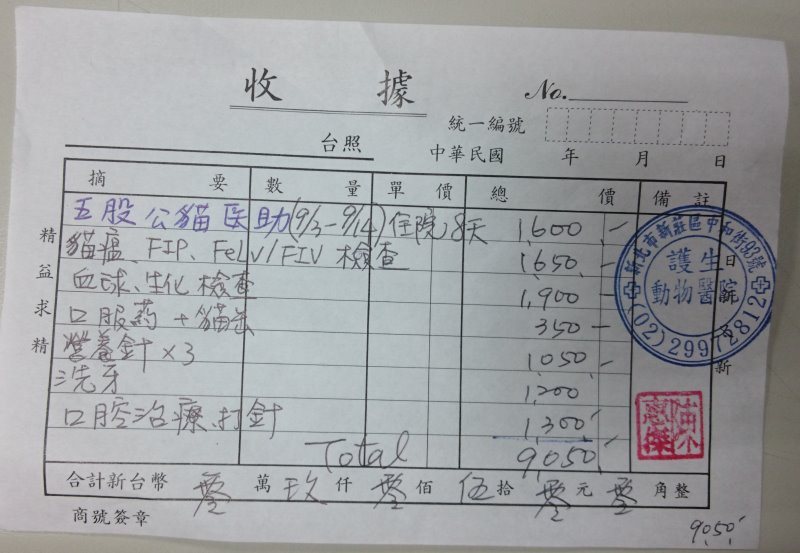 收 據
No.
統一編號
台照
中華民國 年 月 日
摘 要 數 量 單 價 總 價 備 註
五股公貓医助(9/3-9/14)住院8天 1,600.-
貓瘟、FIP、FeLV/FIV 檢查 1,650.-
血球、生化檢查 1,900 -
口服药 + 貓缶 350 -
營養針×3 1,050.-
洗牙 1,200
口腔治療、打針 1,300
Total 9,050.
合計新台幣 零 萬 玖 仟 零 佰 伍 拾 零 元 零 角整
商號簽章
9050
精益求精
日新又新
新北市新莊區中和街93號
護生
動物醫院
(02)29972812